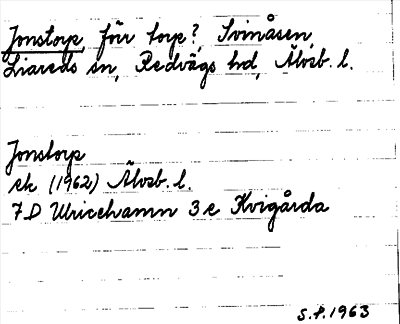 Jonstorp, förr torp?, Svinåsen,
Liareds sn, Redvägs hd, Älvsb. l.
Jonstorp
ek (1962) Älvsb. l.
7D Ulricehamn 3e Kvigårda
S.P. 1963